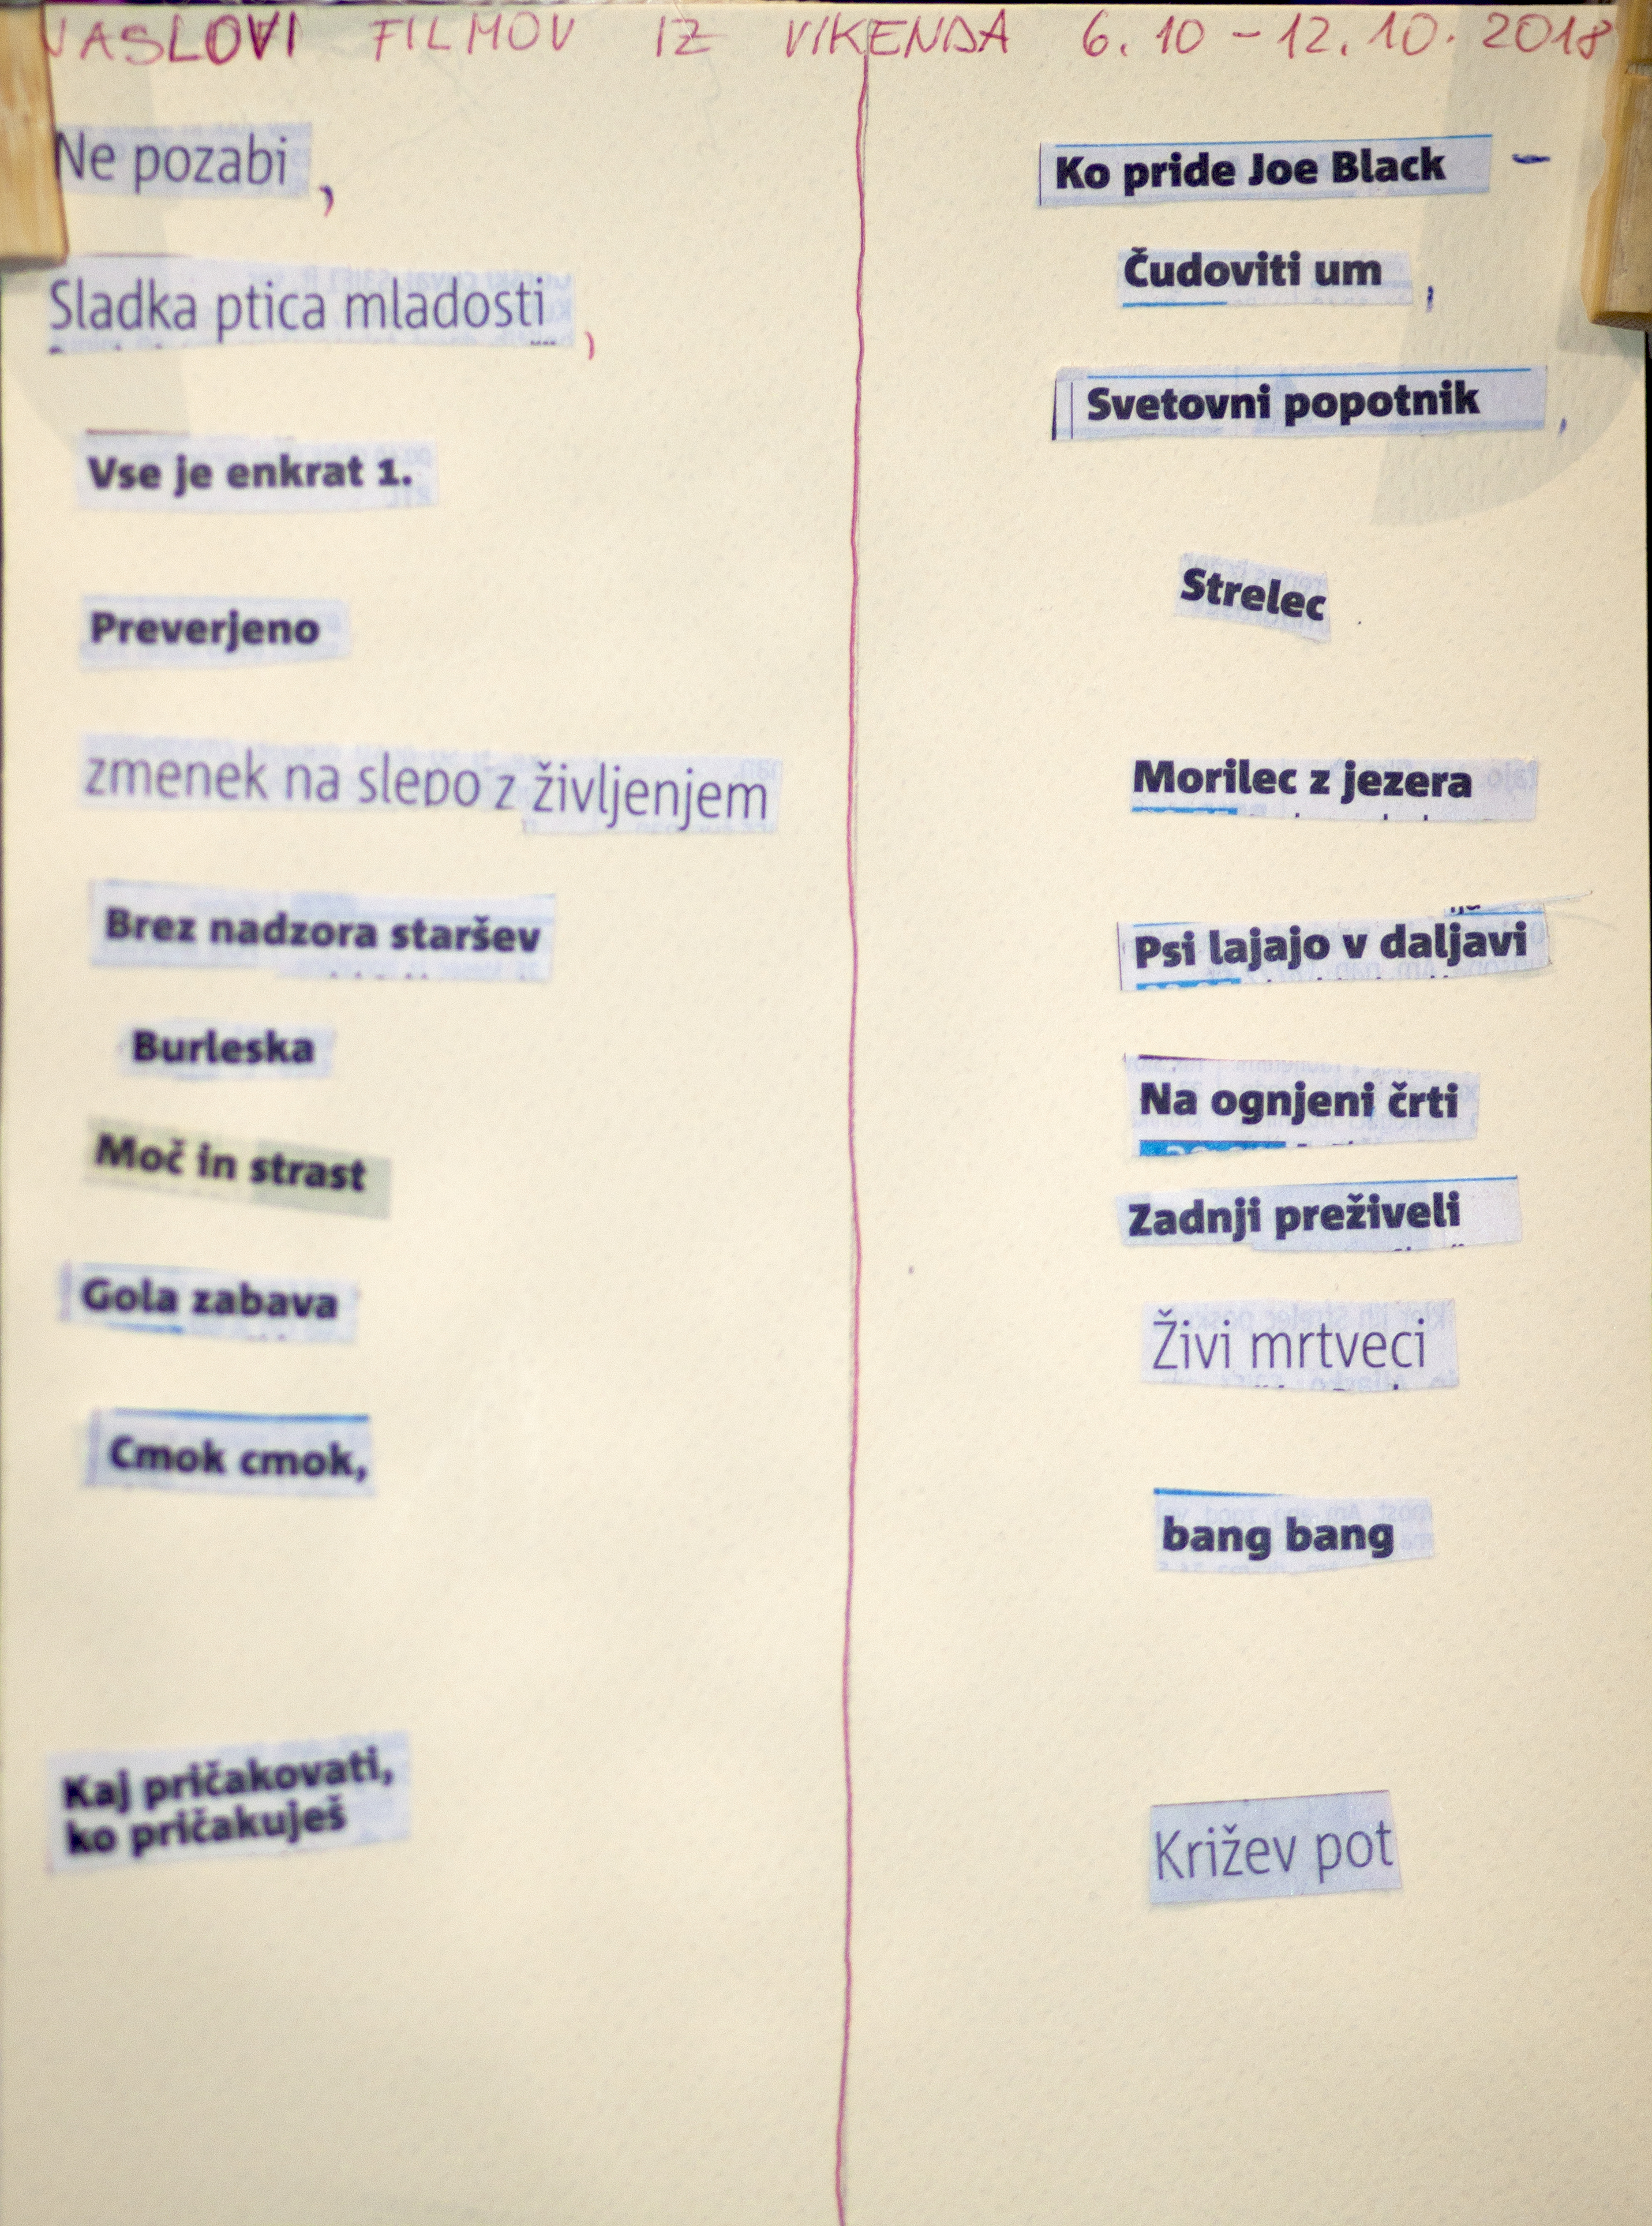 NASLOVI FILMOV IZ VIKENDA 6.10 - 12.10.2018
Ne pozabi,
Sladka ptica mladosti,
Vse je enkrat 1.
Preverjeno
zmenek na slepo z življenjem
Brez nadzora staršev
Burleska
Moč in strast
Gola zabava
Cmok cmok,
Kaj pričakovati,
ko pričakuješ
Ko pride Joe Black -
Čudoviti um,
Svetovni popotnik,
Strelec.
Morilec z jezera
Psi lajajo v daljavi
Na ognjeni črti
Zadnji preživeli
Živi mrtveci
bang bang
Križev pot